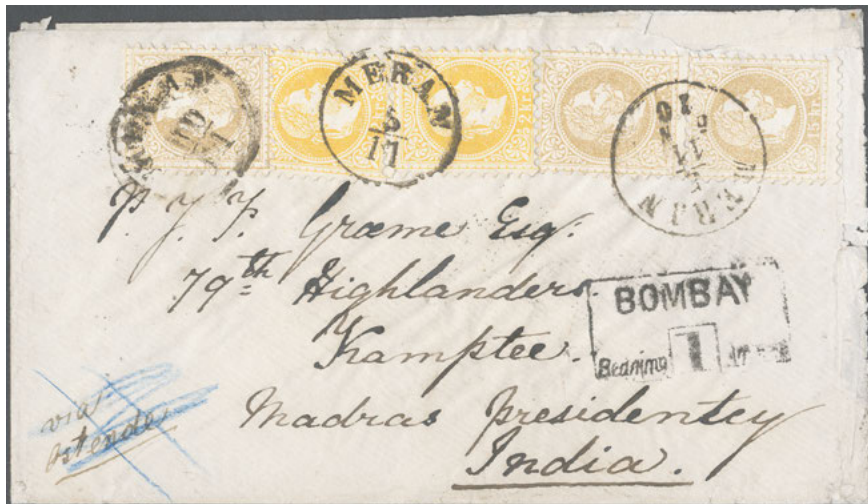 MERAN
MERAN
5
11
2 kr.
MERAN
15 kr.
P. J. J. Græme Esq:
79th Highlanders.
Kamptee.
Madras Presidentcy
India.
BOMBAY
Bearing 1
via
Ostende